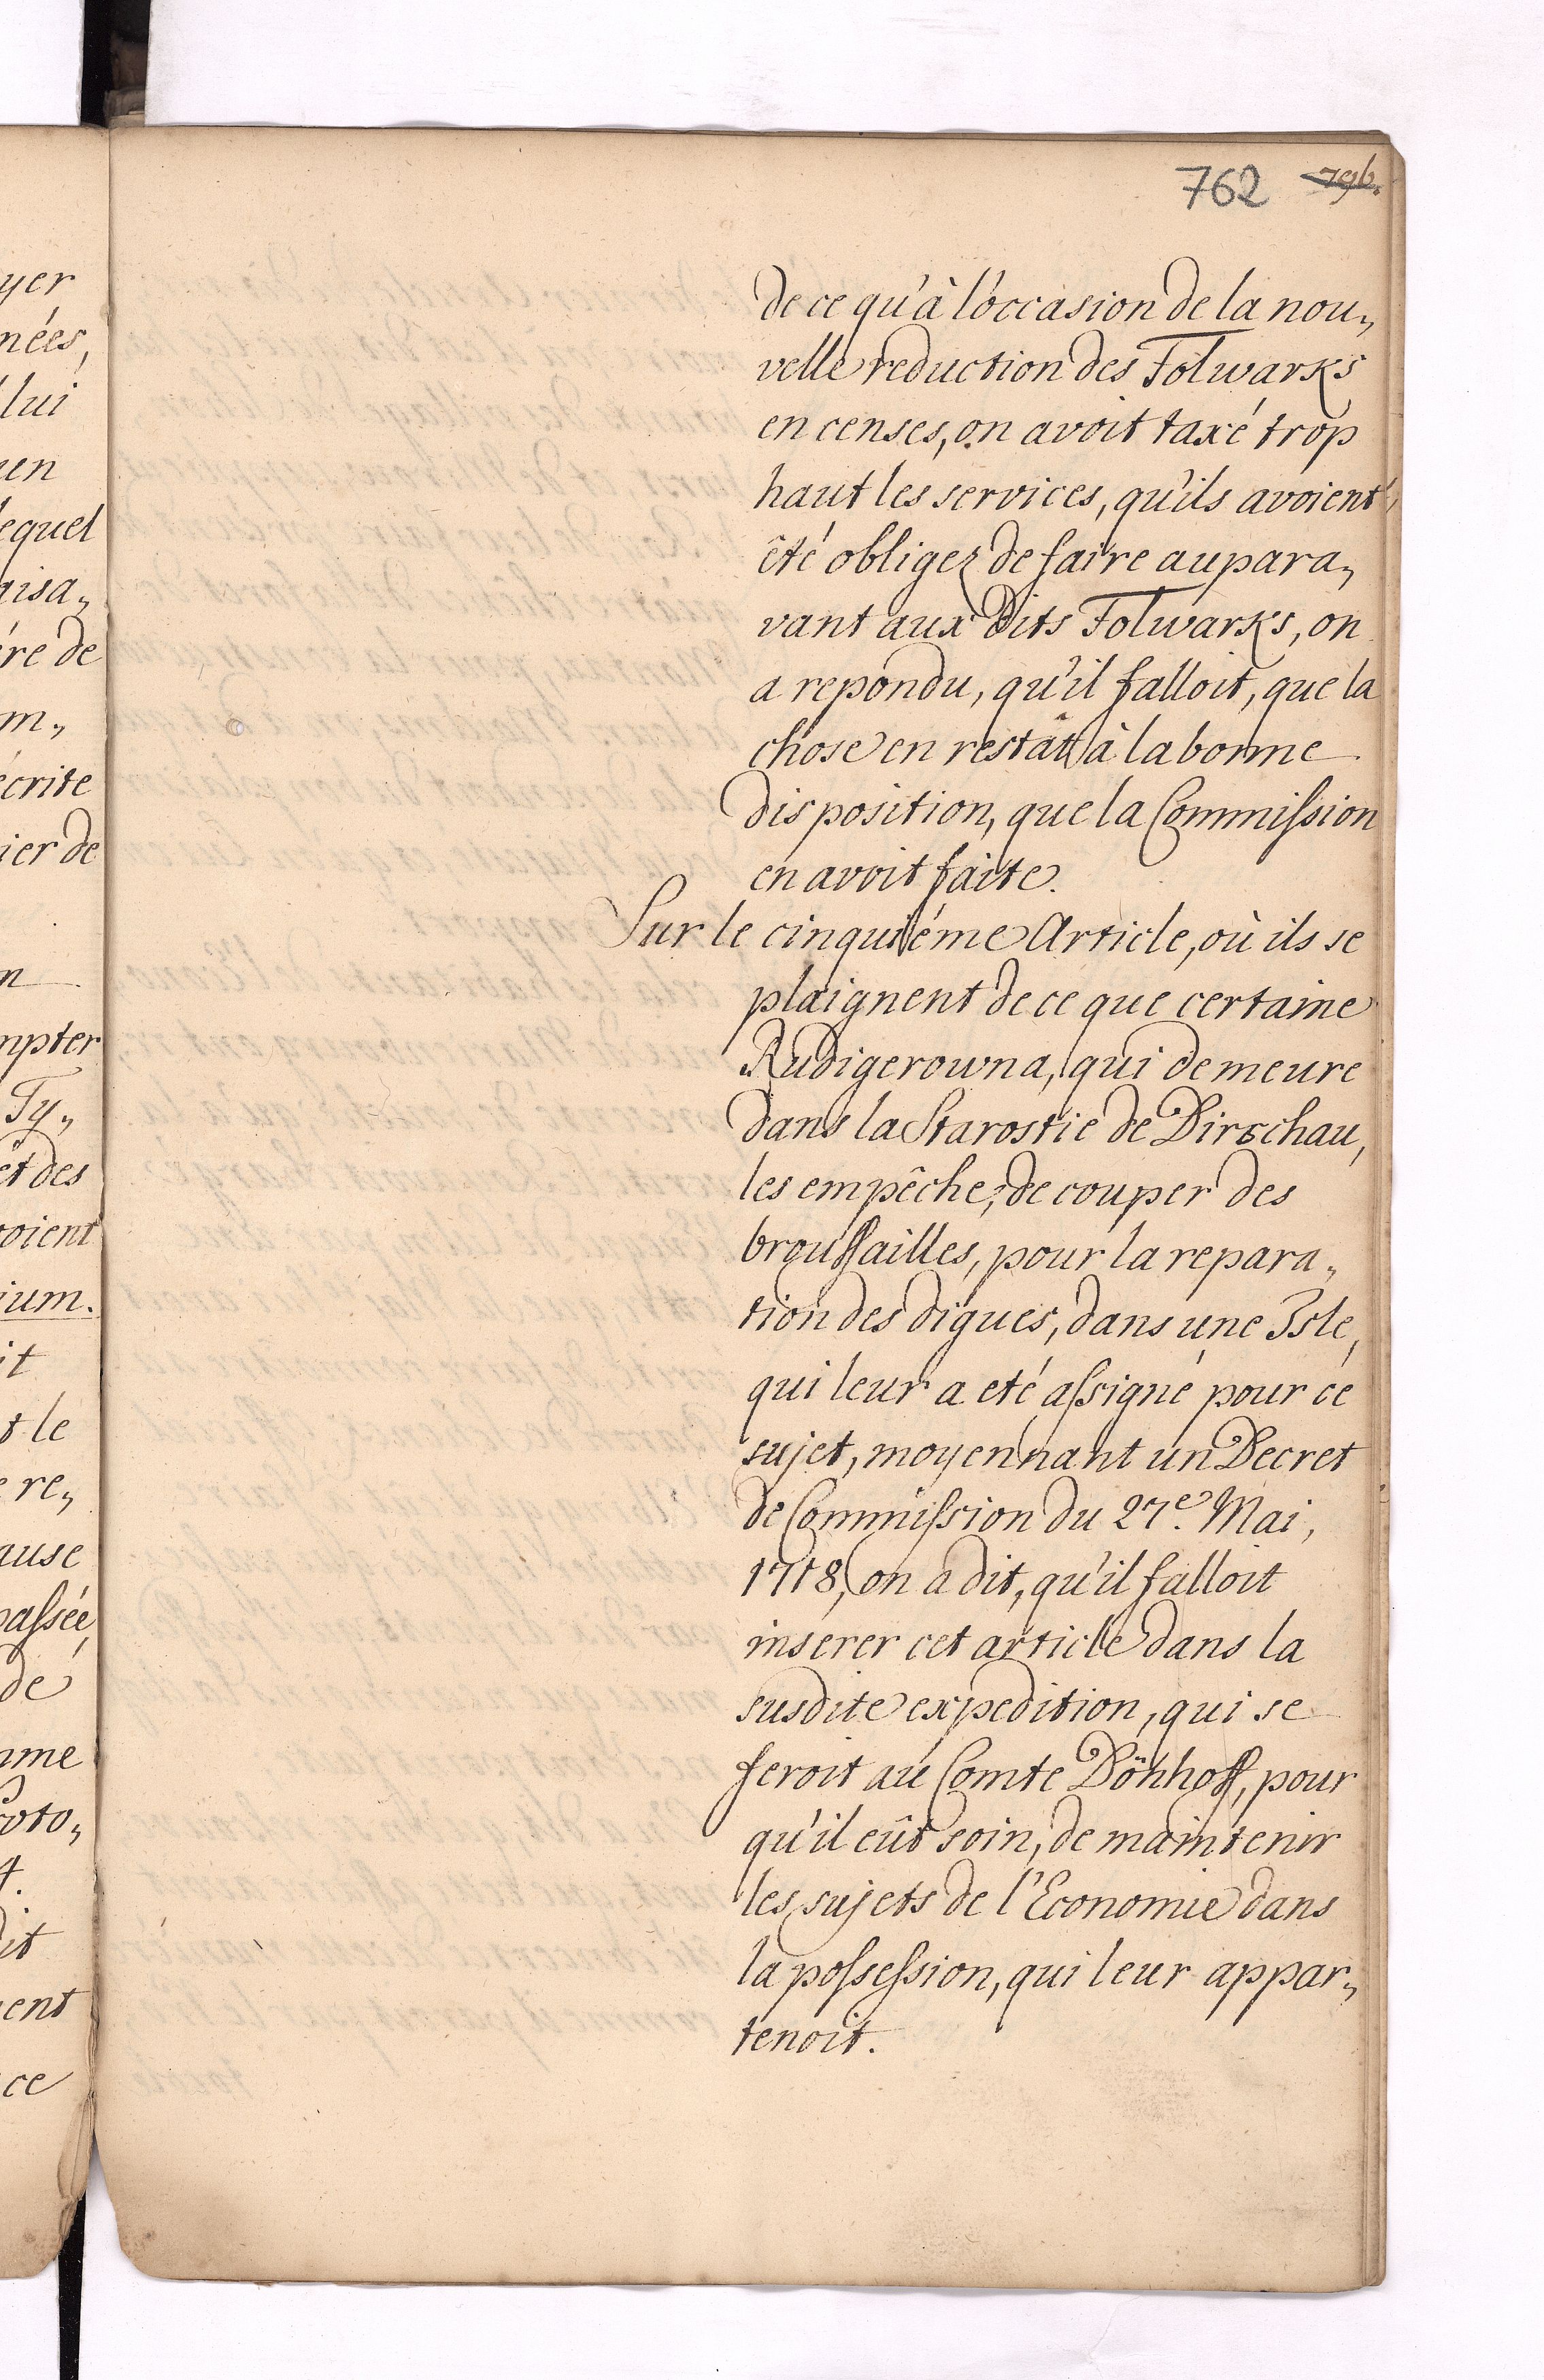 762 796.
de ce qu'à l'occasion de la nou„
velle reduction des Folwarks
en censes, on avoit taxé trop
haut les services, qu'ils avoient
êté obligez de faire aupara„
vant aux dits Folwarks, on
a repondu, qu'il falloit, que la
chose en restât à la bonne
disposition, que la Commission
en avoit faite.
Sur le cinquiéme Article, où ils se
plaignent de ce que certaine
Rudigerowna, qui demeure
dans la Starostie de Dirschau,
les empêche, de couper des
broussailles, pour la repara„
tion des digues, dans une Isle,
qui leur a eté assigné pour ce
sujet, moyennant un Decret
de Commission du 27e. Mai,
1718, on a dit, qu'il falloit
inserer cet article dans la
susdite expedition, qui se
feroit au Comte Dönhoff, pour
qu'il eût soin, de maintenir
les sujets de l'Economie dans
la possession, qui leur appar„
tenoit.
yer
nées,
lui
en
lequel
aisa„
ére de
m„
écrite
ier de
n
mpter
Ty„
et des
voient
ium.
it
t le
re„
ause
passée
de
mme
roto„
4.
dit
ent
ce